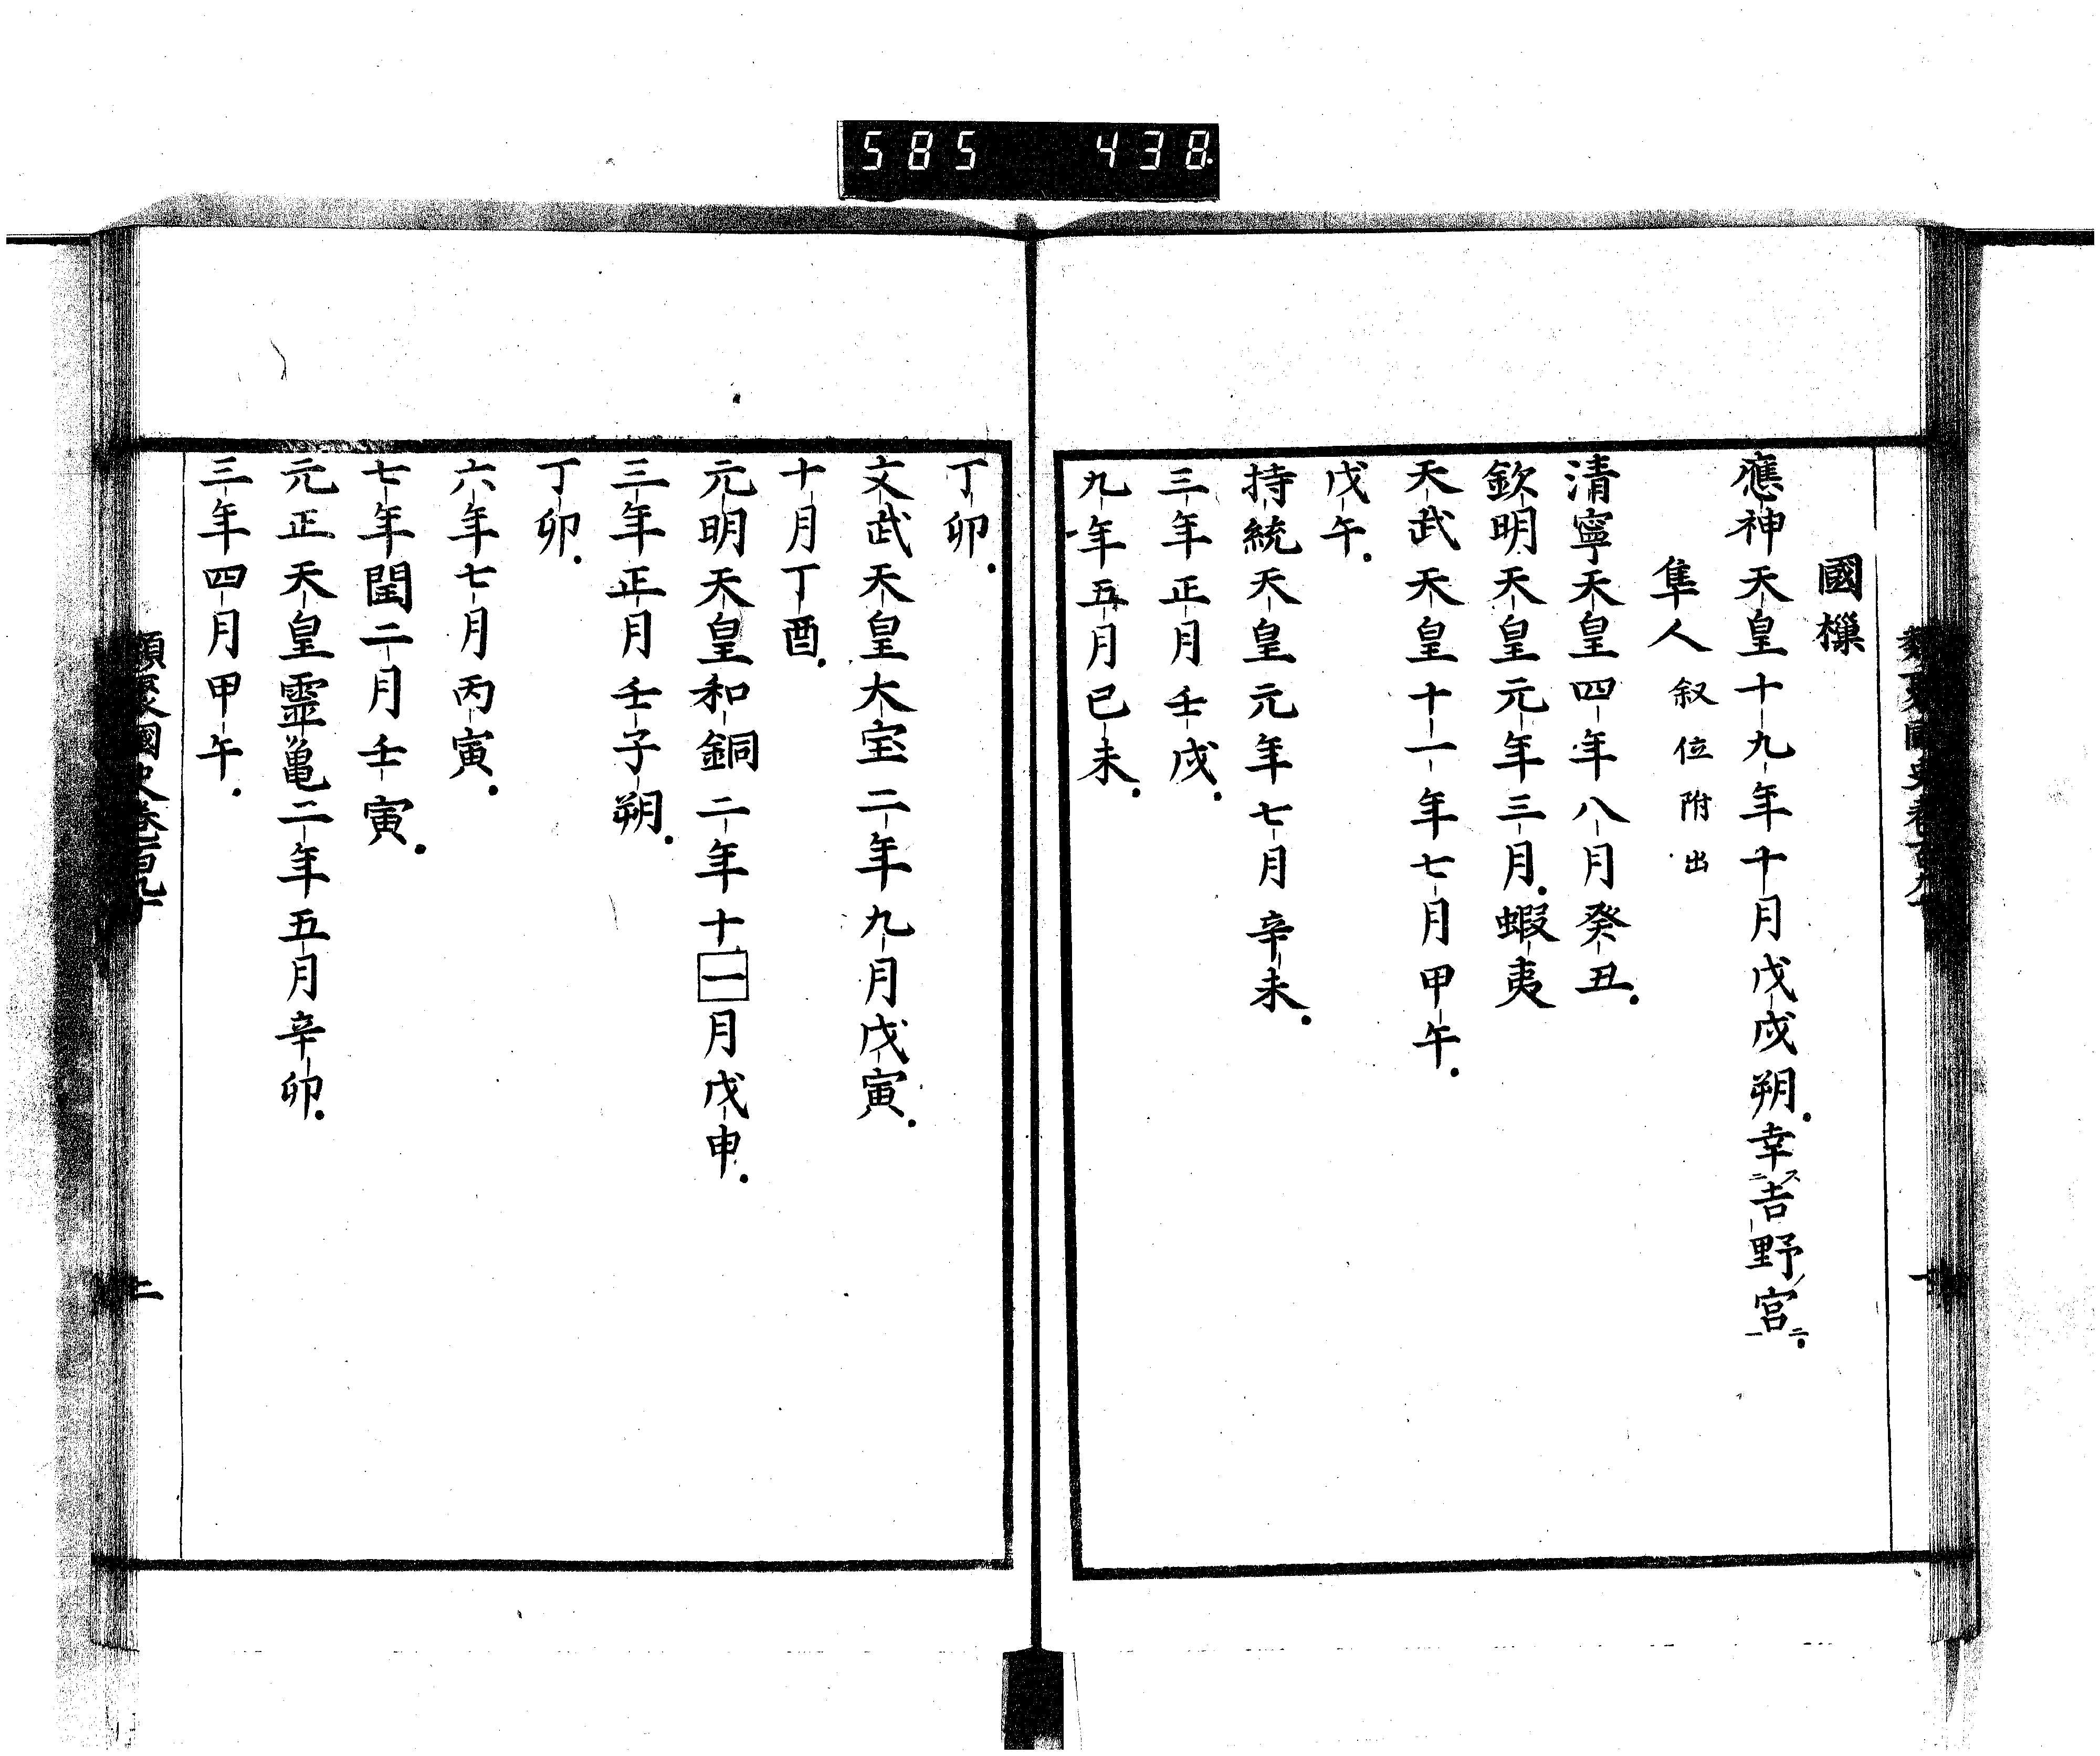 585 438
國樔
應神天皇十九年十月戊戌朔.幸ニス吉野ノ宮一ニ.
隼人 叙位附出
清寧天皇四年八月癸丑.
欽明天皇元年三月.蝦夷
天武天皇十一年七月甲午.
戊午.
持統天皇元年七月辛未.
三年正月壬戌.
九年五月己未.
丁卯.
文武天皇大宝二年九月戊寅.
十月丁酉.
元明天皇和銅二年十一月戊申.
三年正月壬子朔.
丁卯.
六年七月丙寅.
七年閏二月壬寅.
元正天皇霊亀二年五月辛卯.
三年四月甲午.
類聚國史卷百九十
二